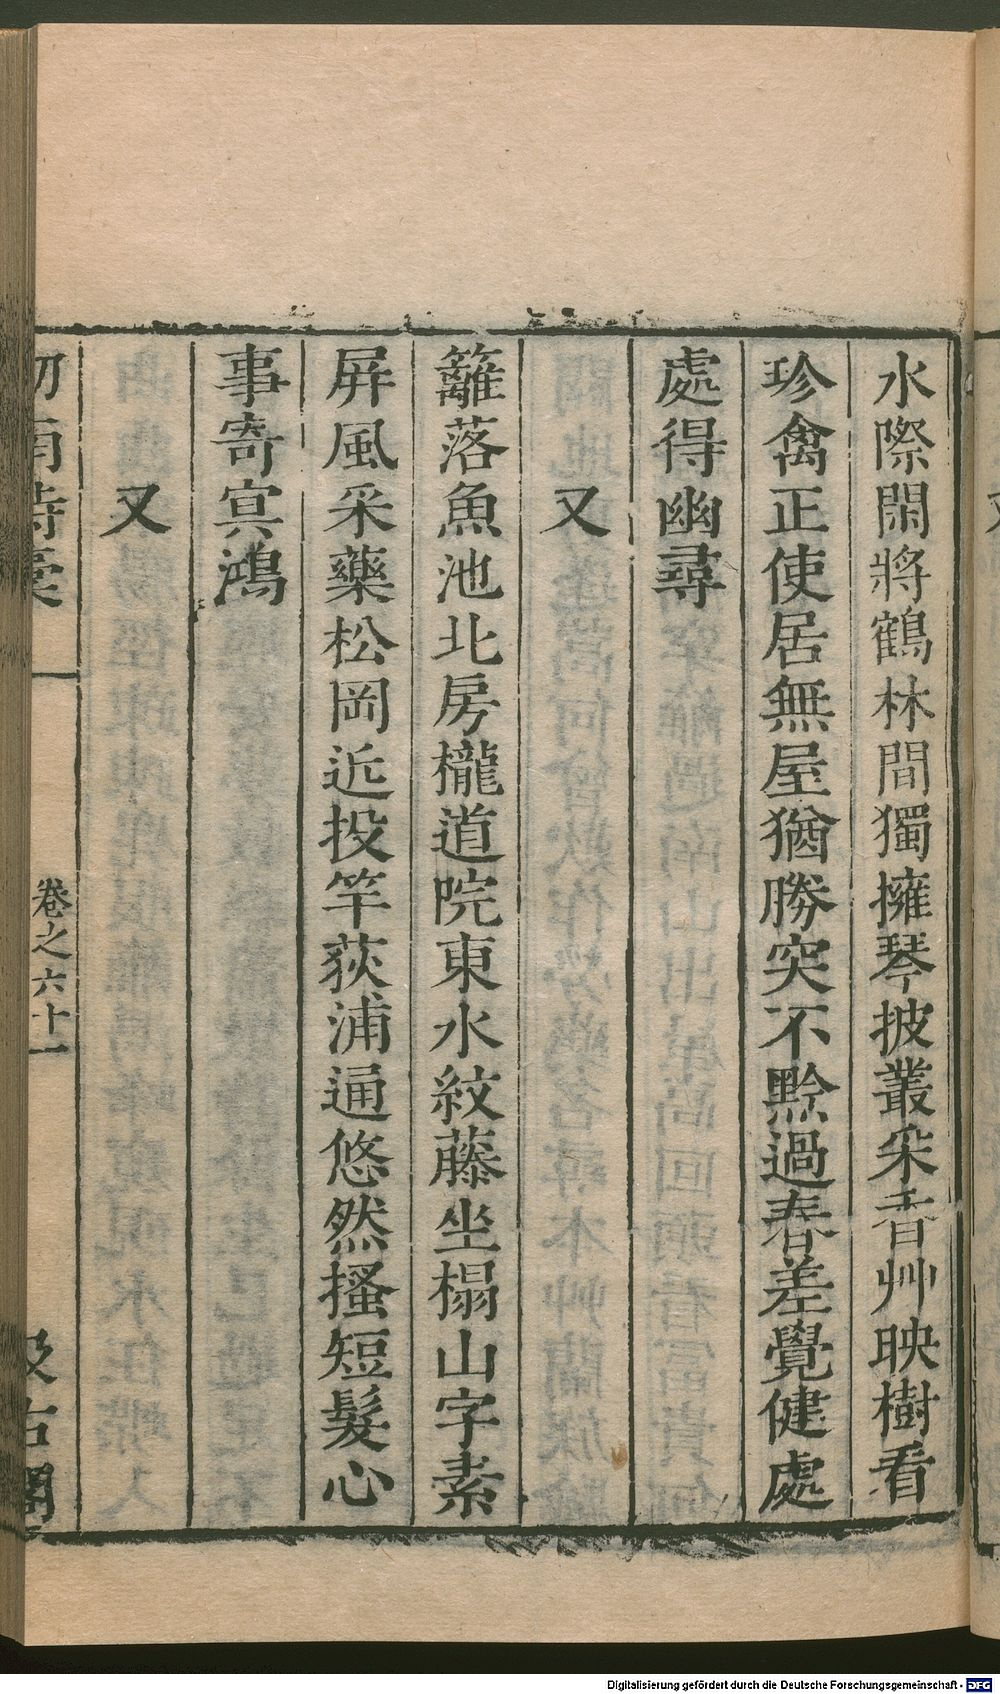 水際閑將鶴林間獨擁琴披叢采香艸映樹看
珍禽正使居無屋猶勝突不黔過春差覺健處
處得幽尋
又
籬落魚池北房櫳道院東水紋藤坐榻山字素
屏風采藥松岡近投竿荻浦通悠然搔短髮心
事寄冥鴻
又
劒南詩稾 卷之六十一 汲古閣
Digitalisierung gefördert durch die Deutsche Forschungsgemeinschaft - DFG